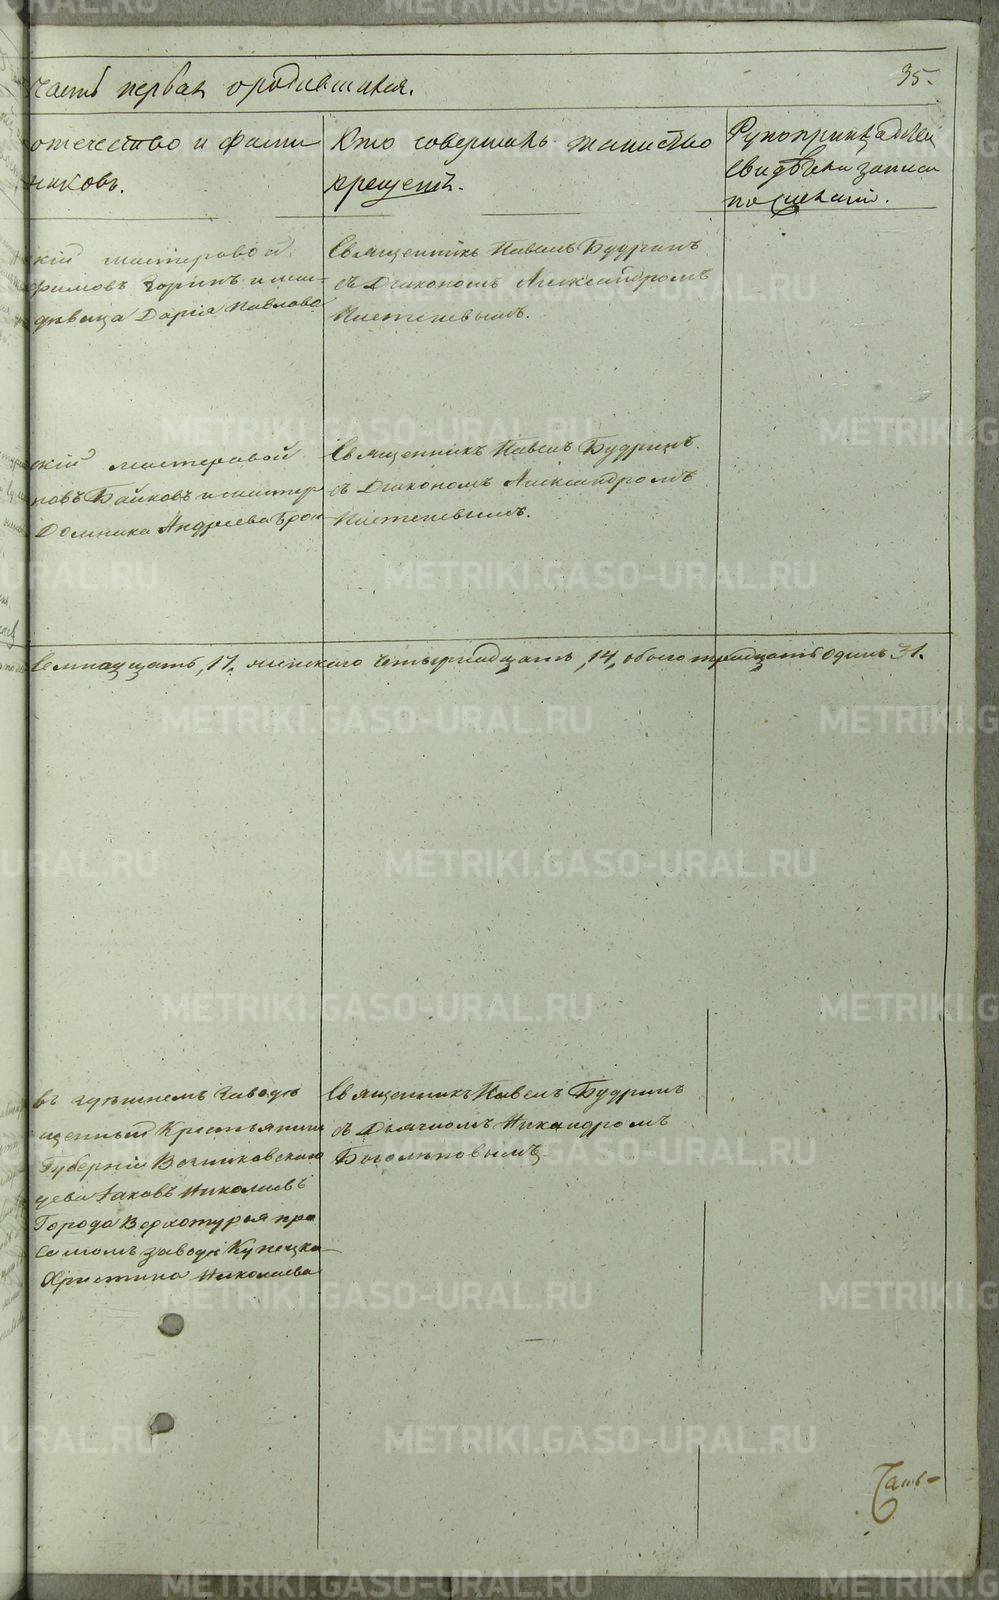 Часть первая о родившихся.
35.
отечество и фами
никовъ.
Кто совершалъ таинство
крещенія.
Рукоприкладство
свидѣтелей записи
по желанію.
скій мастеровой
фимовъ Зоринъ и мас-
дѣвица Дарія Павлова
Священникъ Павелъ Будринъ
съ Діакономъ Александромъ
скій мастеровой
повъ Байковъ и мастер
Домника Андреева
Священникъ Павелъ Будринъ
съ Діакономъ Александромъ
Семнадцать, 17, женскаго Четырнадцать, 14, обоего тридцать одинъ 31.
въ здѣшнемъ заводѣ
щенный Крестьянинъ
Губерніи
Іаковъ Николаевъ
Города Верхотурья про
самомъ заводѣ Купецка-
Христина Николаева
Священникъ Павелъ Будринъ
съ Дьячкомъ Никандромъ
Боголѣповымъ
Часть-
METRIKI.GASO-URAL.RU